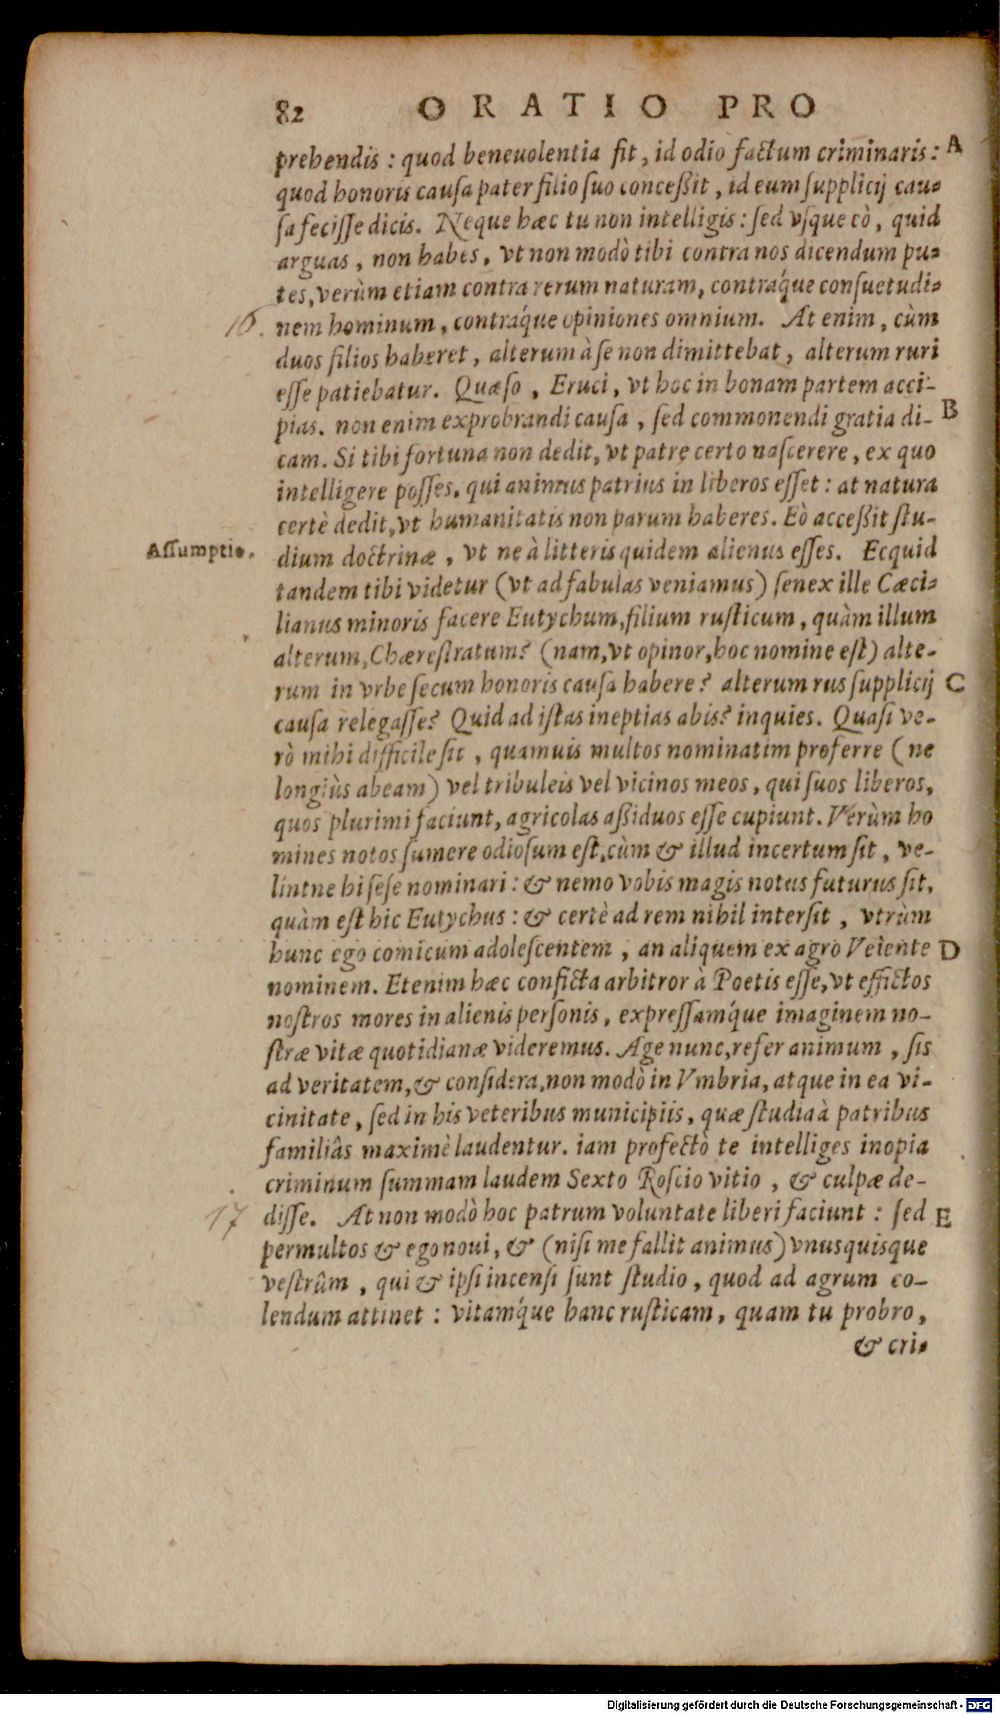 82 ORATIO PRO
prehendis : quod beneuolentia fit, id odio factum criminaris : A
quod honoris causa pater filio suo conceßit, id eum supplicij cau-
sa fecisse dicis. Neque hæc tu non intelligis : sed vsque eò, quid
arguas, non habes, vt non modò tibi contra nos dicendum pu-
tes, verùm etiam contra rerum naturam, contráque consuetudi-
16. nem hominum, contráque opiniones omnium. At enim, cùm
duos filios haberet, alterum à se non dimittebat, alterum ruri
esse patiebatur. Quæso, Eruci, vt hoc in bonam partem acci-
pias. non enim exprobrandi causa, sed commonendi gratia di- B
cam. Si tibi fortuna non dedit, vt patre certo nascerere, ex quo
intelligere posses, qui animus patrius in liberos esset : at natura
certè dedit, vt humanitatis non parum haberes. Eò acceßit stu-
Assumptio. dium doctrinæ, vt ne à litteris quidem alienus esses. Ecquid
tandem tibi videtur (vt ad fabulas veniamus) senex ille Cæci-
lianus minoris facere Eutychum, filium rusticum, quàm illum
alterum, Chærestratum? (nam, vt opinor, hoc nomine est) alte-
rum in vrbe secum honoris causa habere? alterum rus supplicij C
causa relegasse? Quid ad istas ineptias abis? inquies. Quasi ve-
rò mihi difficile sit, quamuis multos nominatim proferre (ne
longiùs abeam) vel tribuleis vel vicinos meos, qui suos liberos,
quos plurimi faciunt, agricolas aßiduos esse cupiunt. Verùm ho
mines notos sumere odiosum est, cùm & illud incertum sit, ve-
lintne hi sese nominari : & nemo vobis magis notus futurus sit,
quàm est hic Eutychus : & certè ad rem nihil intersit, vtrùm
hunc ego comicum adolescentem, an aliquem ex agro Veiente D
nominem. Etenim hæc conficta arbitror à Poetis esse, vt effictos
nostros mores in alienis personis, expressámque imaginem no-
stræ vitæ quotidianæ videremus. Age nunc, refer animum, sis
ad veritatem, & considera, non modò in Vmbria, atque in ea vi-
cinitate, sed in his veteribus municipiis, quæ studia à patribus
familiâs maximè laudentur. iam profectò te intelliges inopia
criminum summam laudem Sexto Roscio vitio, & culpæ de-
17 disse. At non modò hoc patrum voluntate liberi faciunt : sed E
permultos & ego noui, & (nisi me fallit animus) vnusquisque
vestrûm, qui & ipsi incensi sunt studio, quod ad agrum co-
lendum attinet : vitámque hanc rusticam, quam tu probro,
& cri-
Digitalisierung gefördert durch die Deutsche Forschungsgemeinschaft - DFG